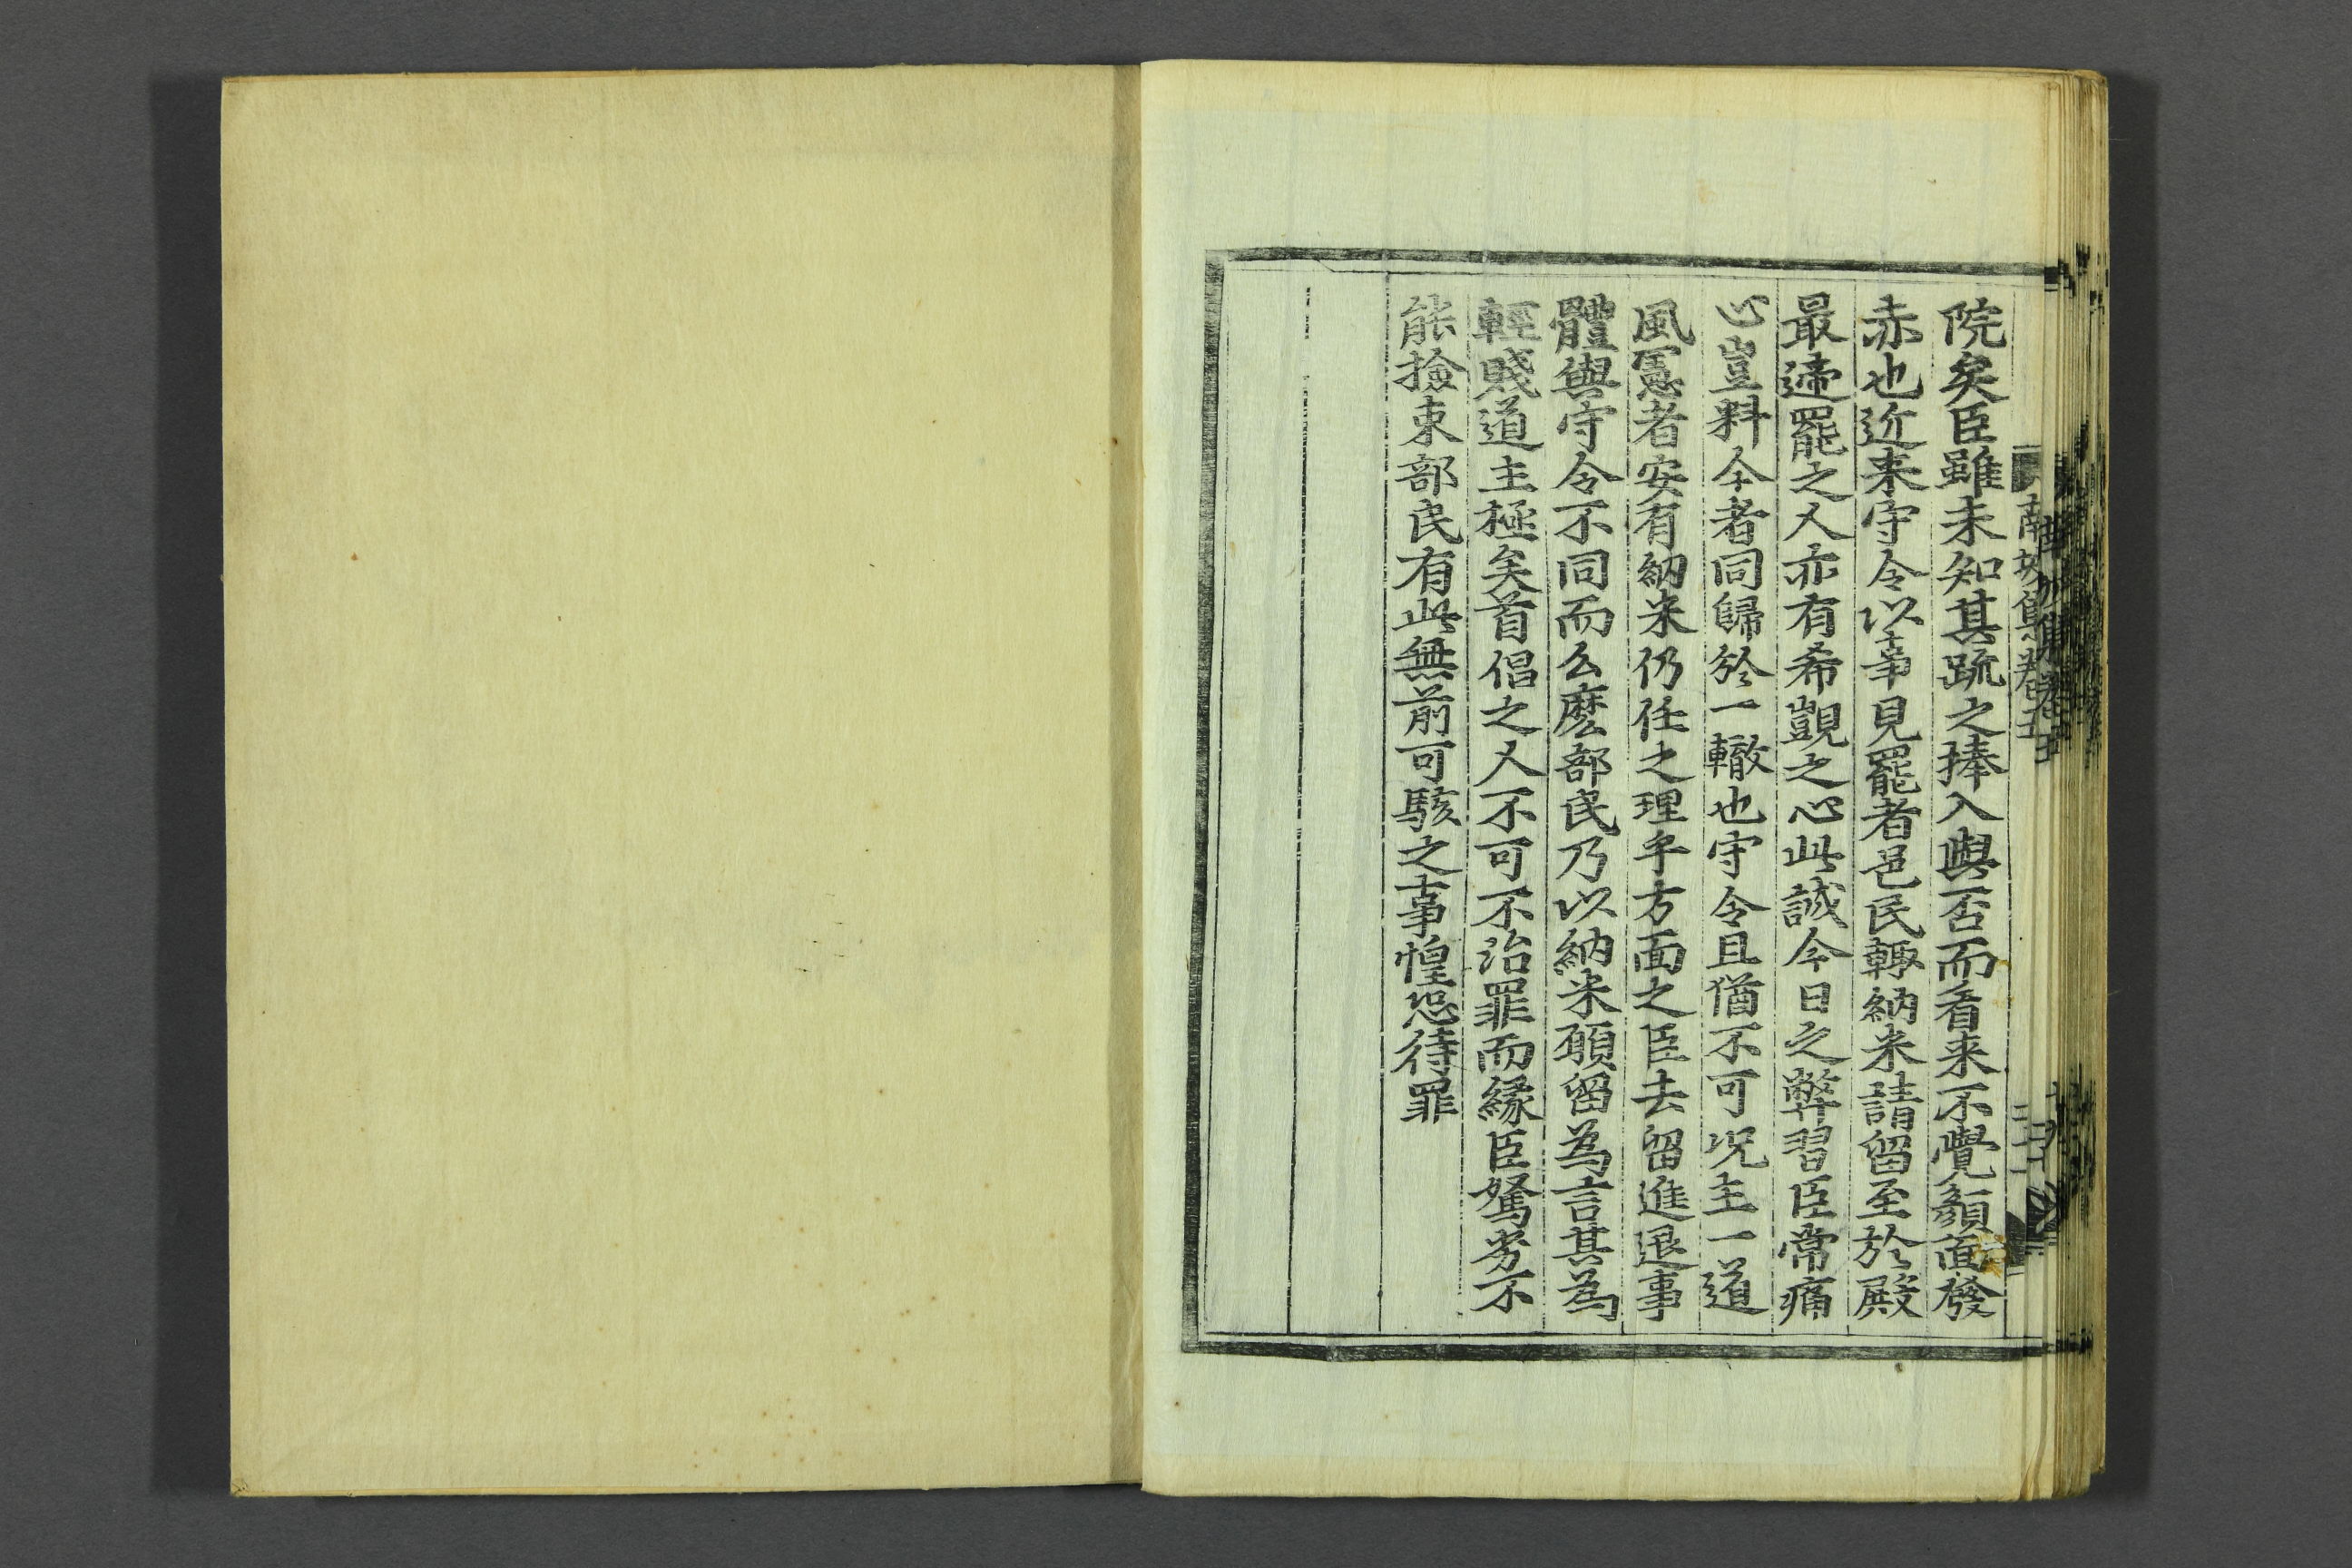 院矣臣雖未知其䟽之捧入與否而看来不覺顔面發
赤也近来守令以事見罷者邑民輙納米請留至於殿
最遞罷之人亦有希覬之心此誠今日之弊習臣常痛
心豈料今者同歸於一轍也守令且猶不可况主一道
風憲者安有納米仍任之理乎方面之臣去留進退事
體與守令不同而么麽部民乃以納米願留為言其為
輕賤道主極矣首倡之人不可不治罪而緣臣駑劣不
能撿束部民有此無前可駭之事惶恐待罪